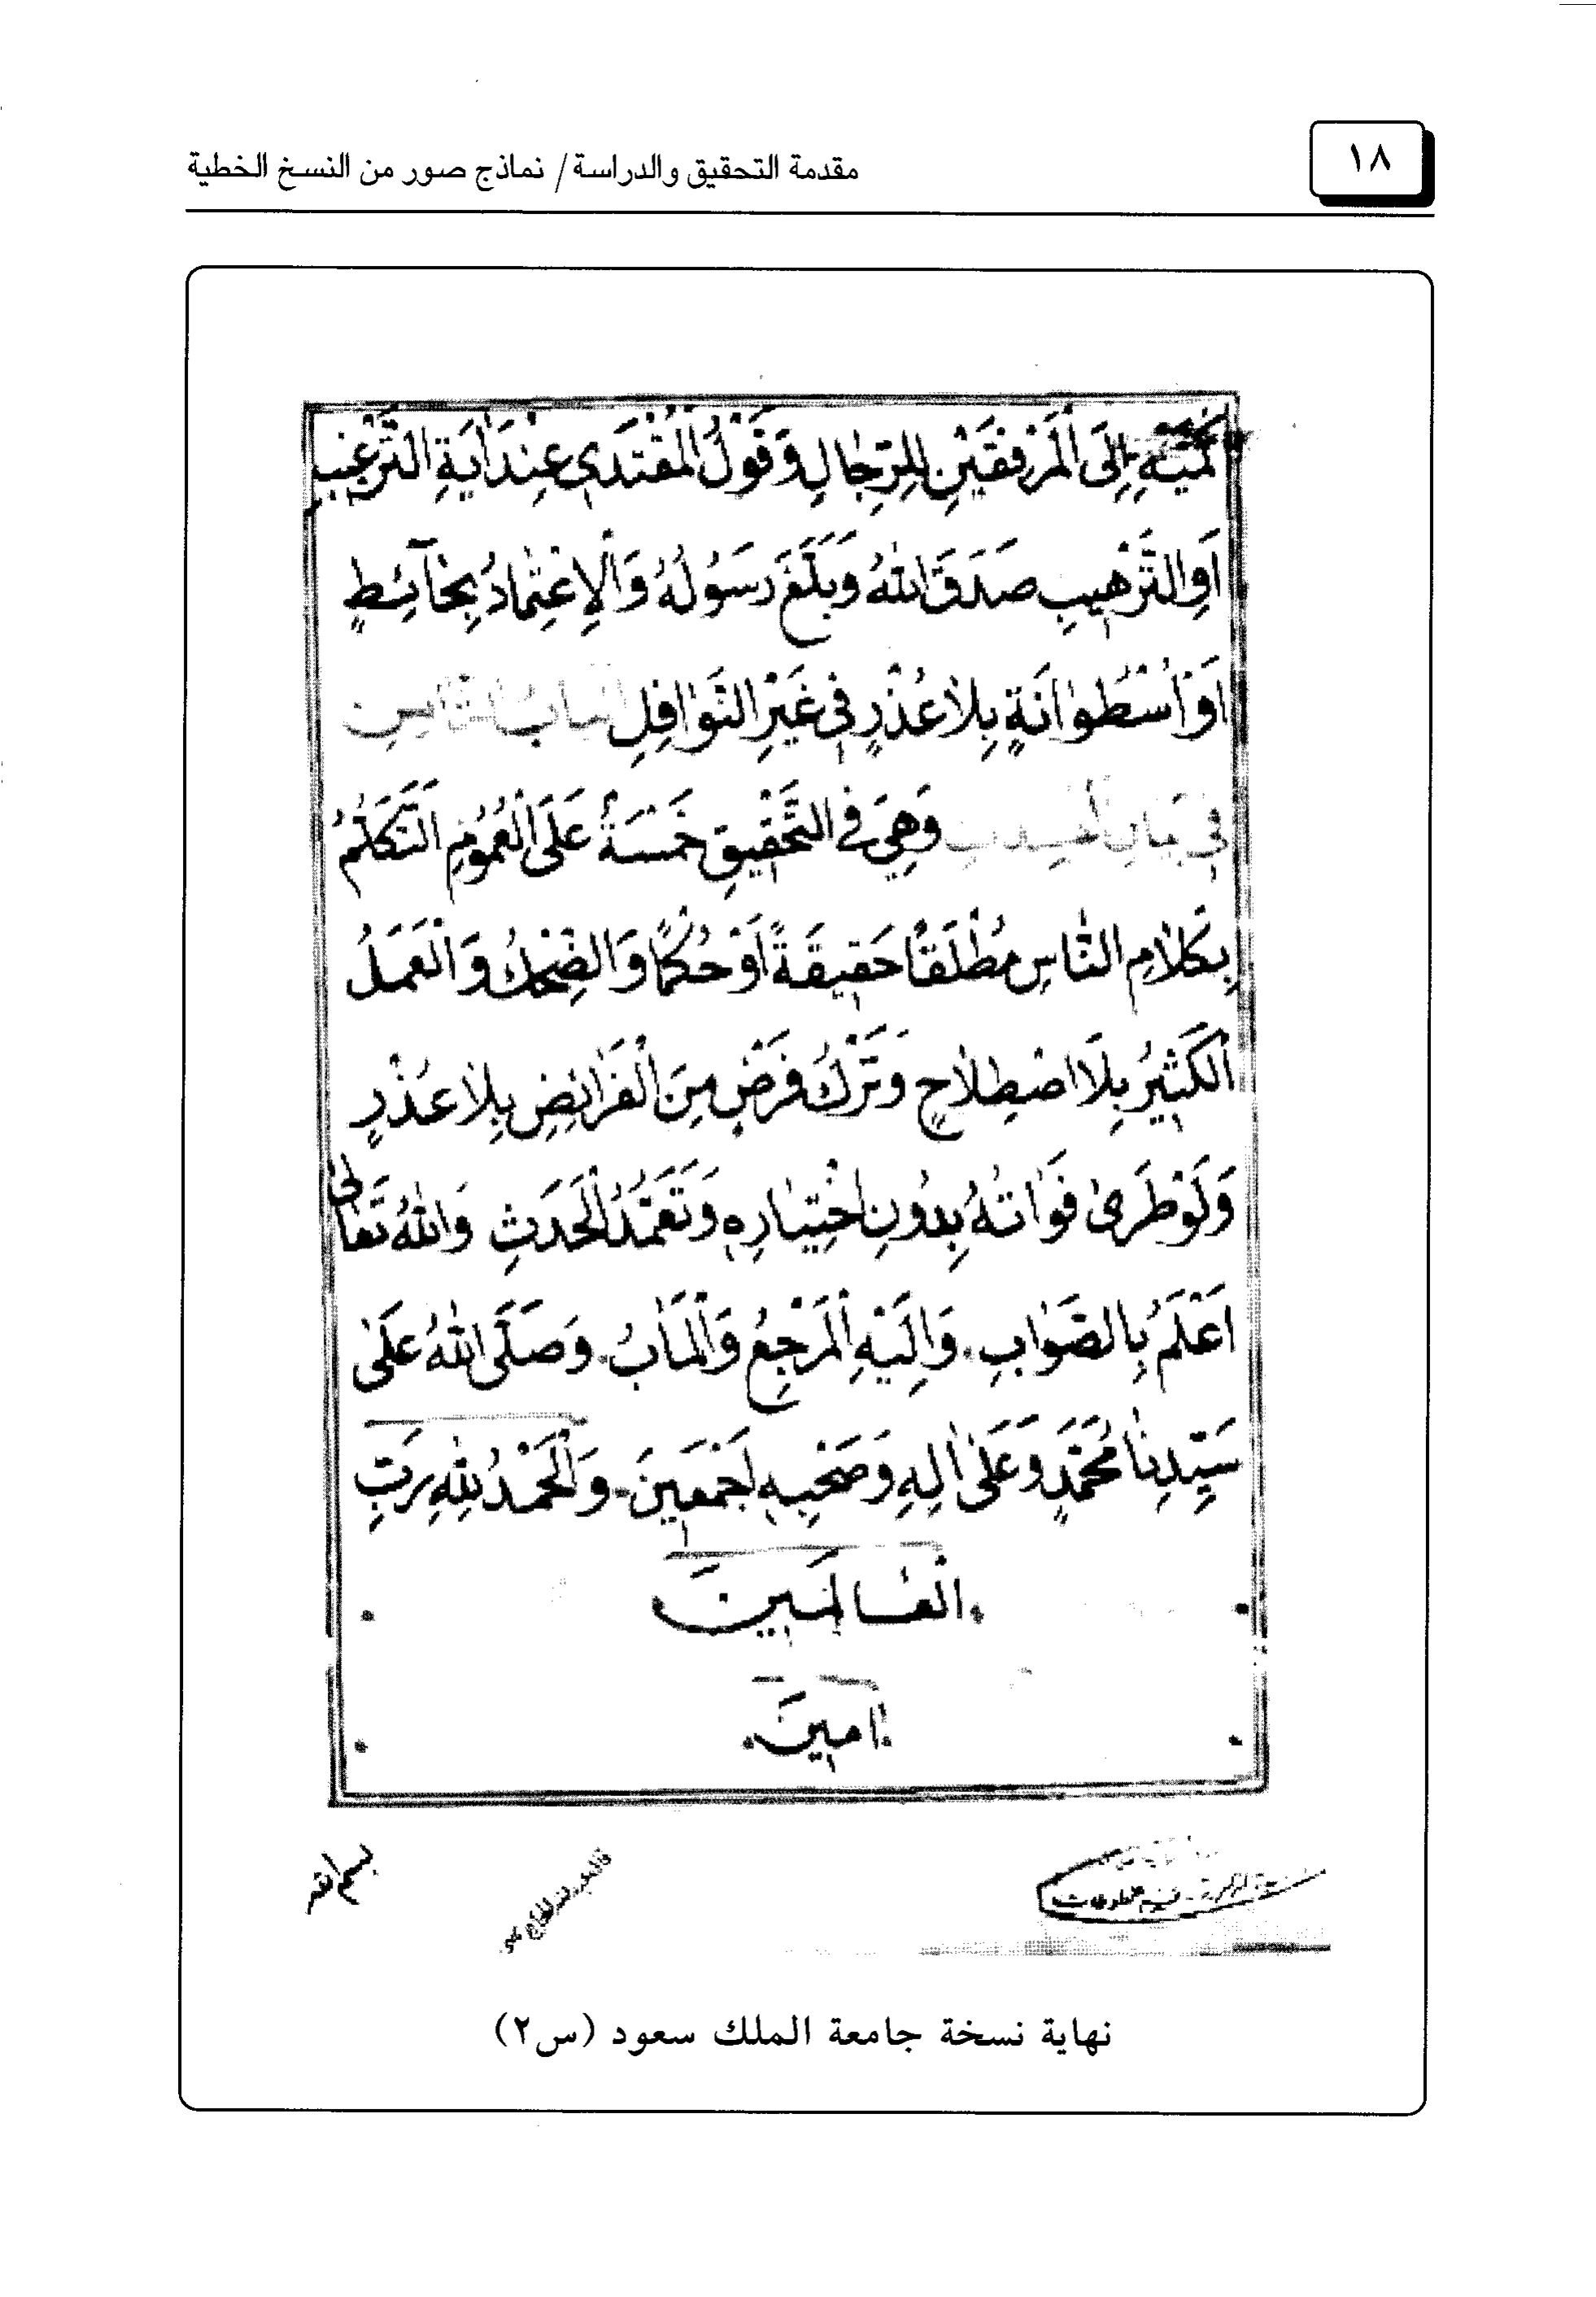 ١٨
مقدمة التحقيق والدراسة / نماذج صور من النسخ الخطية
كُمَّيْهِ إِلَى الْمَرْفِقَيْنِ لِلرِّجَالِ وَقَوْلُ الْمُقْتَدِى عِنْدَ اٰيَةِ التَّرْغِيبِ
اَوِ التَّرْهِيبِ صَدَقَ اللّٰهُ وَبَلَّغَ رَسُولُهُ وَالْاِعْتِمَادُ بِحَآئِطٍ
اَوْ اُسْطُوَانَةٍ بِلَا عُذْرٍ فِى غَيْرِ النَّوَافِلِ الْبَابُ الثَّامِنُ
فِى بَيَانِ الْمُفْسِدَاتِ وَهِىَ فِى التَّحْقِيقِ خَمْسَةٌ عَلَى الْعُمُومِ اَلتَّكَلُّمُ
بِكَلَامِ النَّاسِ مُطْلَقًا حَقِيقَةً اَوْ حُكْمًا وَالضِّحْكُ وَالْعَمَلُ
الْكَثِيرُ بِلَا اصْطِلَاحٍ وَتَرْكُ فَرْضٍ مِنَ الْفَرَائِضِ بِلَا عُذْرٍ
وَلَوْ طَرَىٰ فَوَاتُهُ بِدُونِ اخْتِيَارِهِ وَتَعَمُّدُ الْحَدَثِ وَاللّٰهُ تَعَالٰى
اَعْلَمُ بِالصَّوَابِ. وَاِلَيْهِ الْمَرْجِعُ وَالْمَاٰبُ. وَصَلَّى اللّٰهُ عَلٰى
سَيِّدِنَا مُحَمَّدٍ وَعَلٰى اٰلِهِ وَصَحْبِهِ اَجْمَعِينَ. وَالْحَمْدُ لِلّٰهِ رَبِّ
.الْعَالَمِينَ
.اٰمِينَ.
قسم المخطوطات
بسم الله
نهاية نسخة جامعة الملك سعود (س٢)